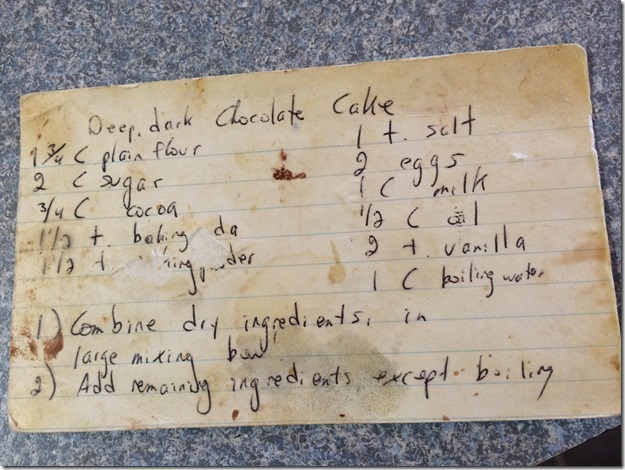 Deep, dark Chocolate Cake
1 3/4 C plain flour
2 C sugar
3/4 C cocoa
1 1/2 t. baking da
1 1/2 t. king powder
1 t. salt
2 eggs
1 C milk
1/2 C oil
2 t. vanilla
1 C boiling water
1) Combine dry ingredients, in
large mixing bowl
2) Add remaining ingredients except boiling